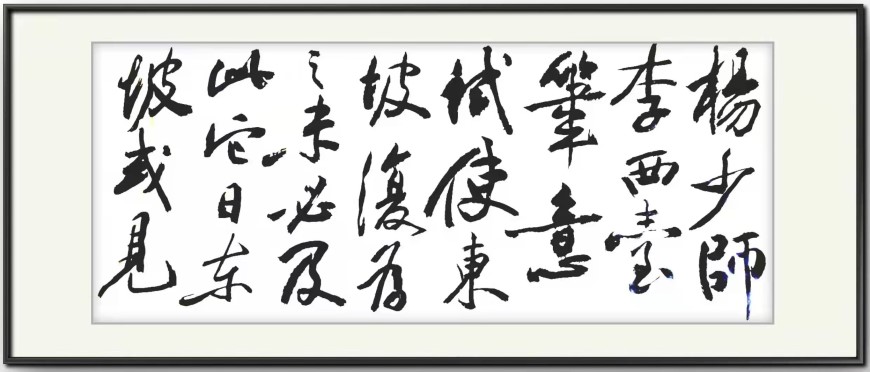 楊少師
李西臺
筆意
試使東
坡復為
之未必及
此它日东
坡或見